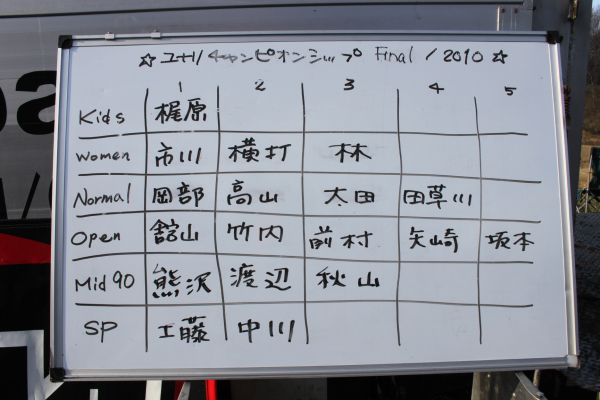 ☆ ユナリチャンピオンシップ Final / 2010 ☆
1 2 3 4 5
Kids 梶原
Women 市川 横打 林
Normal 岡部 高山 太田 田草川
Open 舘山 竹内 前村 矢崎 坂本
Mid 90 熊沢 渡辺 秋山
SP 工藤 中川